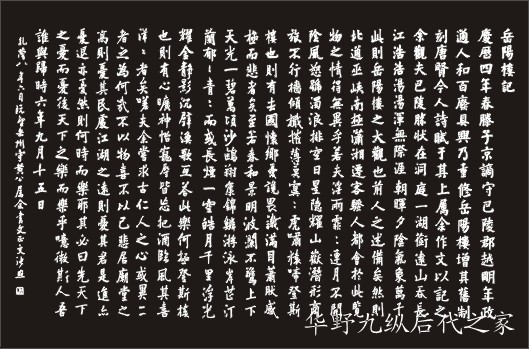 岳陽樓記
慶曆四年春滕子京謫守巴陵郡越明年政
通人和百廢具興乃重修岳陽樓增其舊制
刻唐賢今人詩賦于其上屬余作文以記之
余觀夫巴陵勝狀在洞庭一湖銜遠山吞長
江浩浩蕩蕩渾無際涯朝暉夕陰氣象萬千
此則岳陽樓之大觀也前人之述備矣然則
北通巫峽南極瀟湘遷客騷人都會於此覽
物之情得無異乎若夫淫雨霏〻連月不開
陰風怒號濁浪排空日星隱耀山嶽潛形商
旅不行檣傾楫摧薄暮冥〻虎嘯猿啼登斯
樓也則有去國懷鄉憂讒畏譏滿目蕭然感
極而悲者矣至若春和景明波瀾不驚上下
天光一碧萬頃沙鷗翔集錦鱗游泳岸芷汀
蘭郁〻青〻而或長煙一空皓月千里浮光
耀金靜影沉璧漁歌互荅此樂何極登斯樓
也則有心曠神怡寵辱皆忘把酒臨風其喜
洋〻者矣嗟夫余嘗求古仁人之心或異二
者之為何哉不以物喜不以己悲居廟堂之
高則憂其民處江湖之遠則憂其君是進亦
憂退亦憂然則何時而樂耶其必曰先天下
之憂而憂後天下之樂而樂乎噫微斯人吾
誰與歸時六年九月十五日
华野九纵后代之家